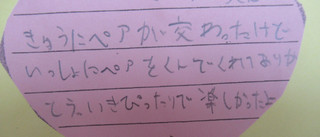 きゅうにペアが交わったけど
いっしょにペアをくんでくれてありが
とう。いきぴったりで楽しかったよ